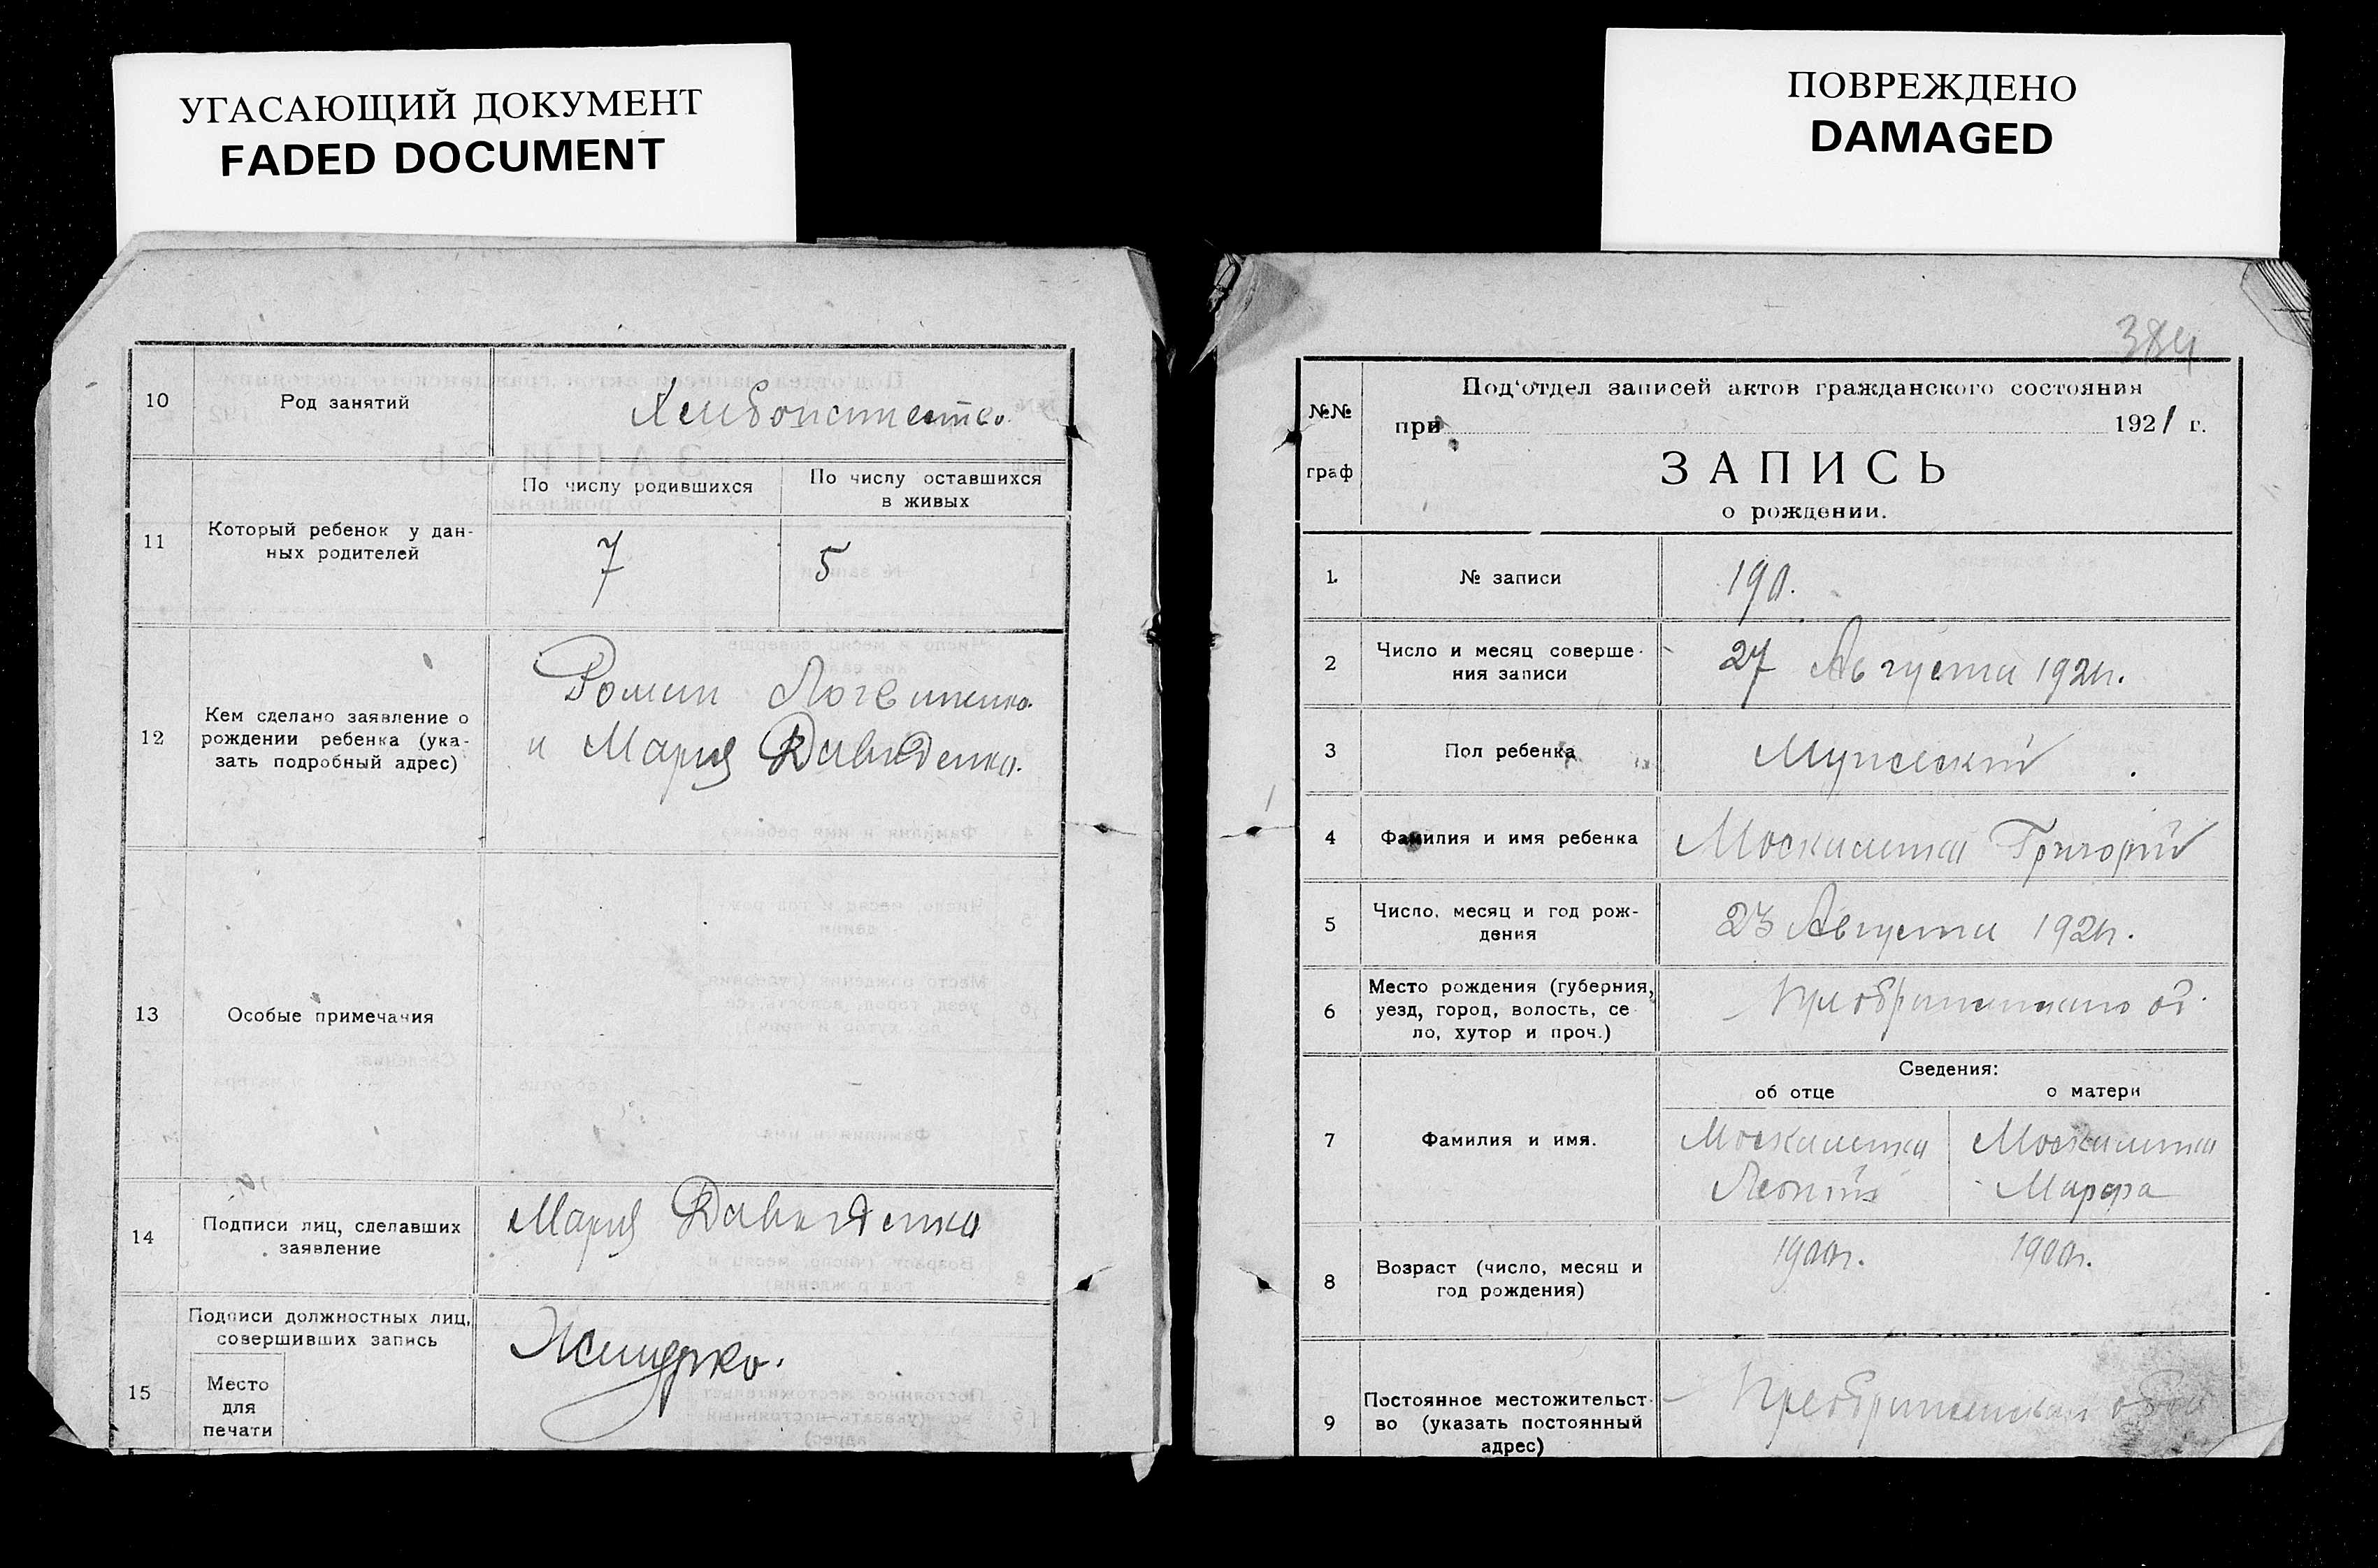 УГАСАЮЩИЙ ДОКУМЕНТ
FADED DOCUMENT
10
Род занятий
Хлебопашество.
11
Который ребенок у дан-
ных родителей
По числу родившихся
По числу оставшихся
в живых
7
5
12
Кем сделано заявление о
рождении ребенка (ука-
зать подробный адрес)
Роман Логвиненко
и Мария Давиденко.
13
Особые примечания
14
Подписи лиц, сделавших
заявление
Мария Давиденко
15
Подписи должностных лиц,
совершивших запись
Место
для
печати
ПОВРЕЖДЕНО
DAMAGED
384
№№
граф
Под'отдел записей актов гражданского состояния
при 1921 г.
ЗАПИСЬ
о рождении.
1.
№ записи
190.
2
Число и месяц соверше-
ния записи
27 Августа 1921г.
3
Пол ребенка
Мужеский
4
Фамилия и имя ребенка
Москалетка Григорий
5
Число, месяц и год рож-
дения
23 Августа 1921г.
6
Место рождения (губерния,
уезд, город, волость, се
ло, хутор и проч.)
7
Фамилия и имя.
Сведения:
об отце
о матери
Москалетка
Леонтий
Москалетка
Марфа
8
Возраст (число, месяц и
год рождения)
1900г.
1900г.
9
Постоянное местожительст-
во (указать постоянный
адрес)